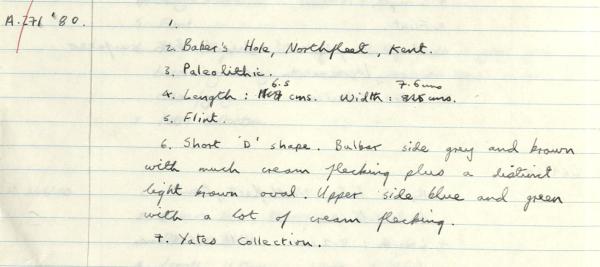 A.271 '80. 1.
2. Baker's Hole, Northfleet, Kent.
3. Paleolithic.
4. Length: 6.5 cms. Width: 7.6 cms.
5. Flint.
6. Short 'D' shape. Bulbar side grey and brown
with much cream flecking plus a distinct
light brown oval. Upper side blue and green
with a lot of cream flecking.
7. Yates Collection.